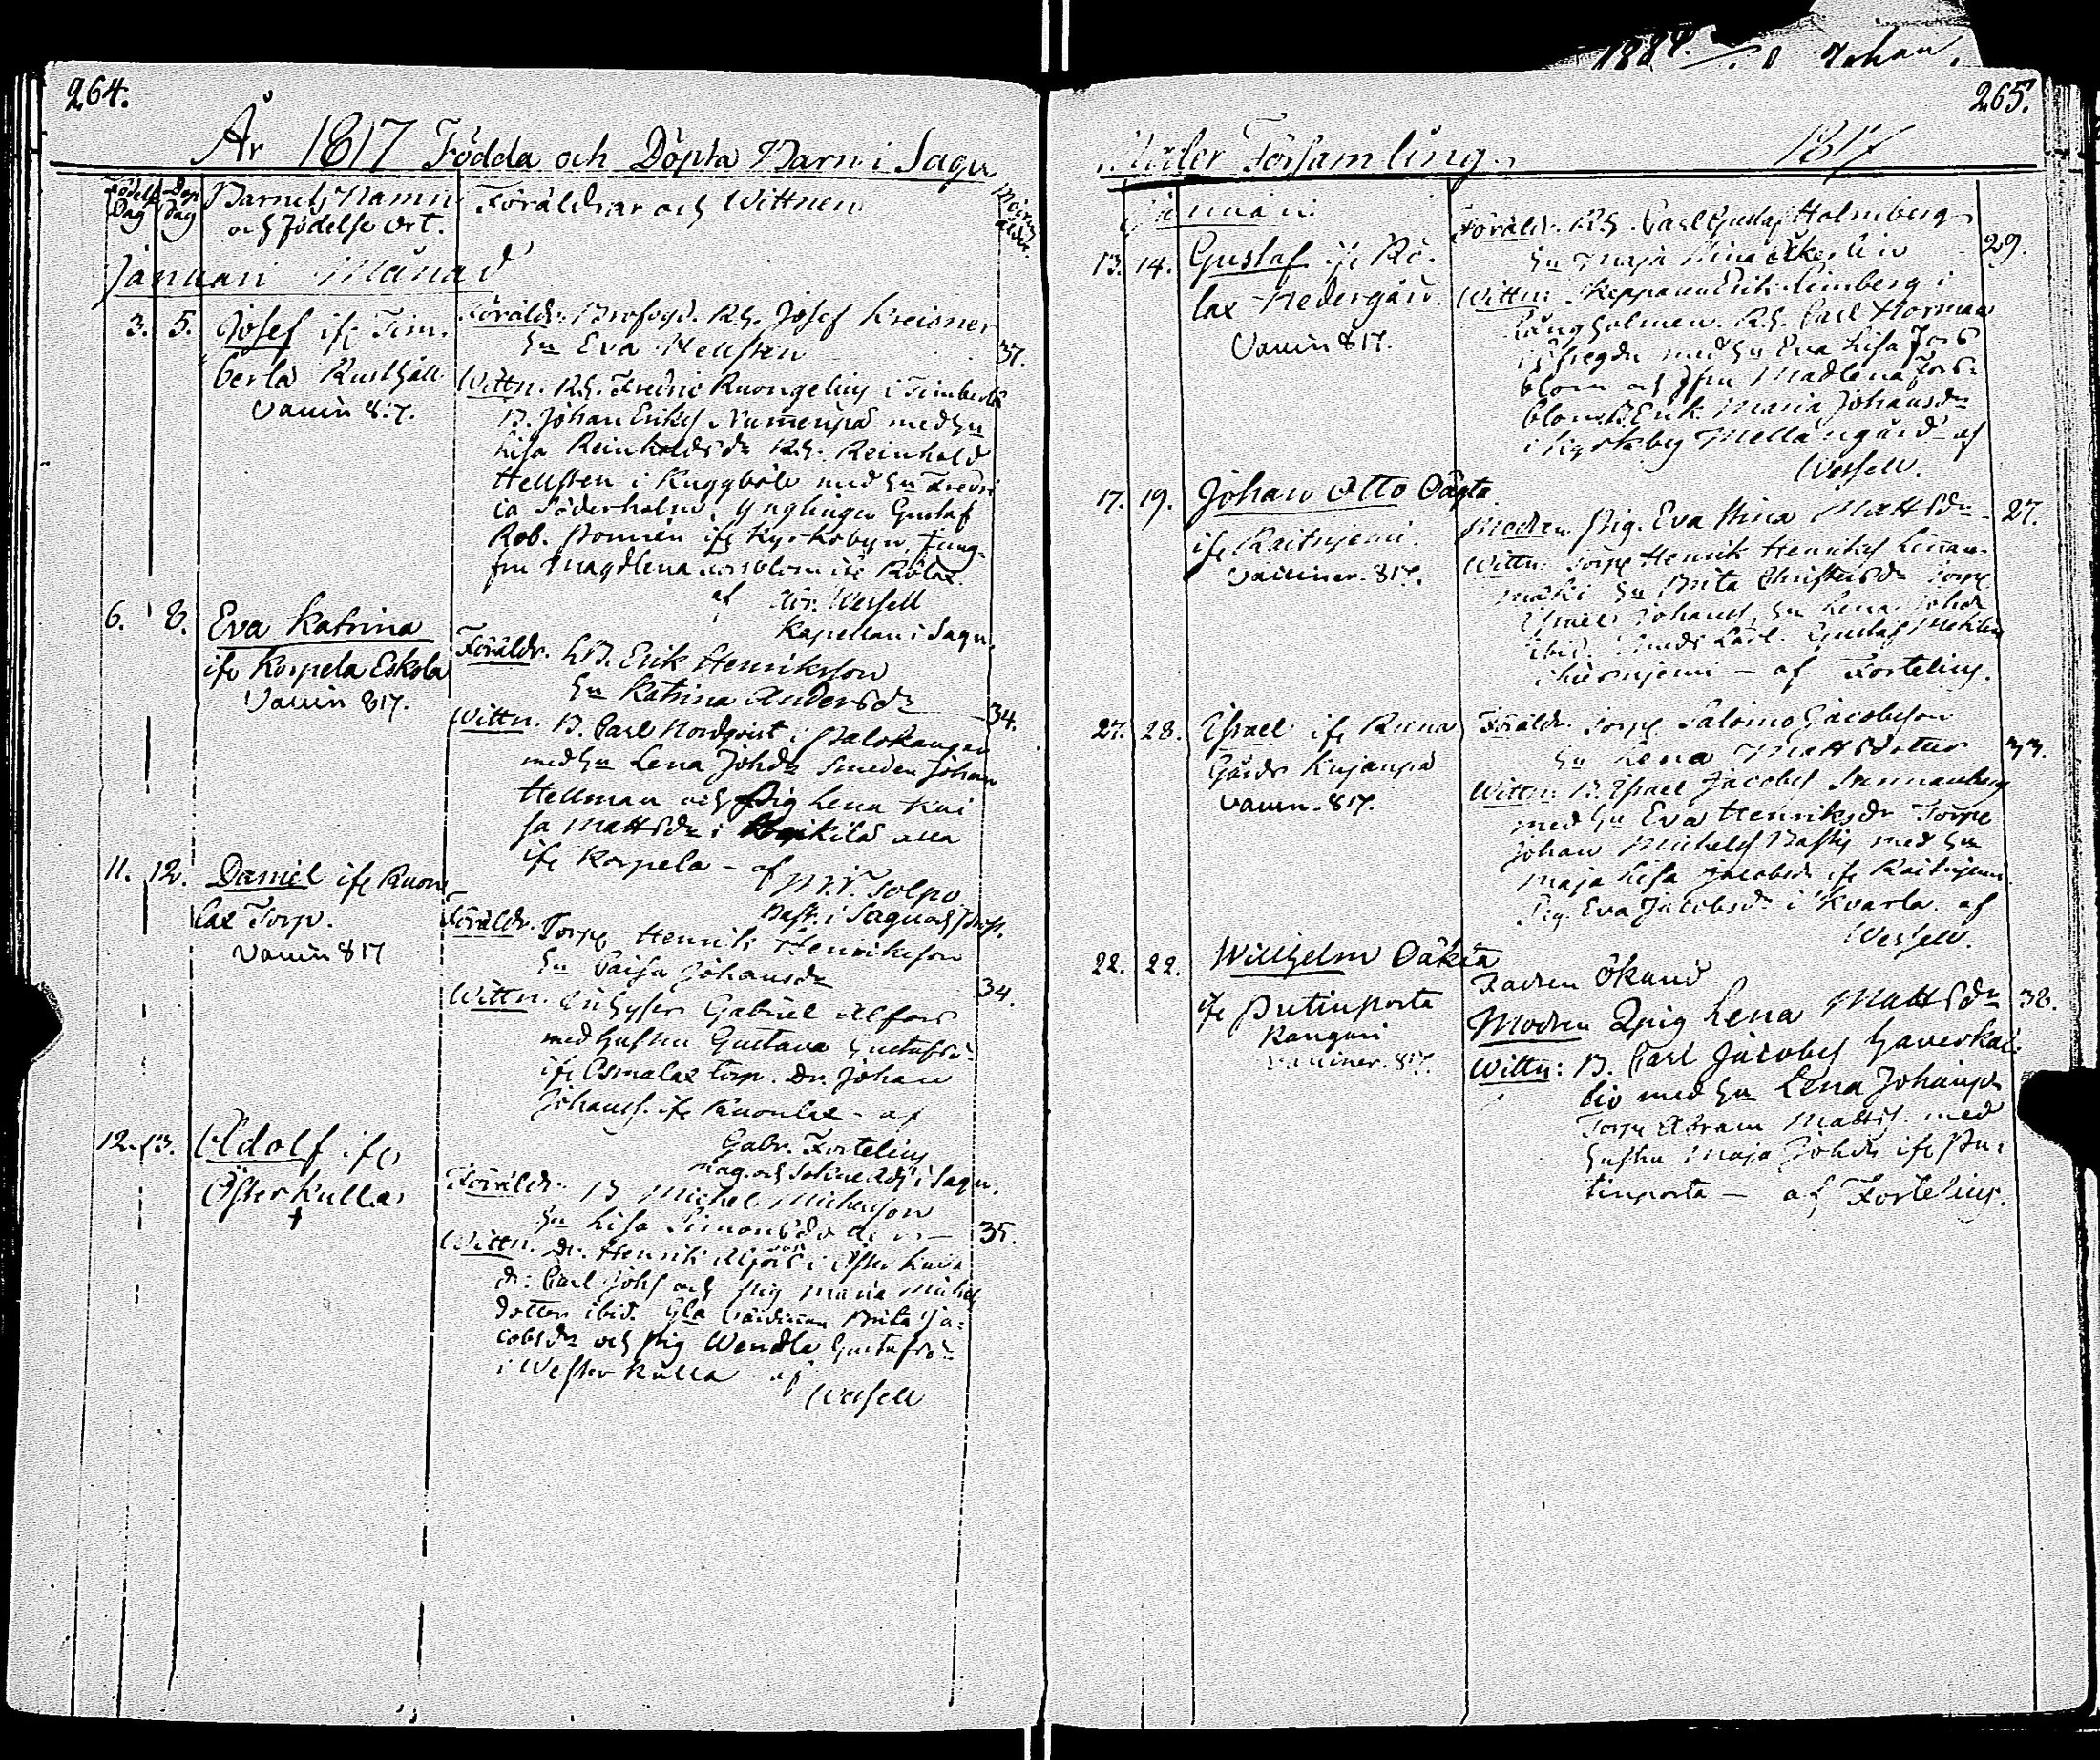 264.
År 1817 Födda och Döpta Barn i Sagu
Födelse Dag
Dop Dag
Barnets Namn
och födelse ort.
Föräldrar och Wittnen
Januari Månad
3. 5. Josef ifr Tim-
berla Rusthåll
Vaccin 817.
Föräldr. R.h. Josef Kreisner
hu Eva Hellsten 37.
Wittn. Rh. Fredric Ruongelius i Timberla
B. Johan Eriks Nummenpä med hu
Lisa Reinholdsdr Rh. Reinhold
Hellsten i Kuggböle med hu Fredri
ca Söderholm. Ynglingen Gustaf
Rob. ifr Kyrkobyn, Jung-
fru Magdlena ifr Rölax.
af Wessell
Kapellan i Sagu.
6. 8. Eva Katrina
ifr Korpela Eskola
Vaccin 817.
Föräldr. LB. Erik Henriksson
hu Katrina Andersdr 34.
Wittn. B. Carl Nordqvist i
med hu Lena Johdr Smeden Johan
Hellman och Pig Lena Kai
sa Mattsdr i alla
ifr Korpela - af
Past. i Sagu och Prost.
11. 12. Daniel ifr Ruon-
lax Torp.
Vaccin 817
Föräldr. Torp Henrik Henriksson
hu Caisa Johansdr 34.
Wittn. Inhyses Gabriel Alfors
med hustru Gustava Gustafsdr
ifr Osmalax torp. Dr. Johan
Johanss. ifr Ruonlax - af
Gabr. Fortelius
12. 13. Adolf ifr
Österkulla
†
Föräldr. B Michel Michelsson
hu Lisa Simonsdotter - 35.
Wittn. Dr. Henrik i Öster kulla
dr: Carl Johs och Pig Maria Michels
dotter ibid. Gla Värdinnan Brita Ja-
cobsdr och Pig Wendla Gustafsdr
i Westerkulla af
Wessell
265.
Församling. 1817
Januari
13. 14. Gustaf ifr Rö-
lax Nedergård.
Vaccin 817.
Föräldr. Rh. Carl Gustaf Holmberg
hu Maja Stina Åkerlin 29.
Wittn: Skepparen Erik Limberg i
Långholmen. Rh. Carl Norman
med hu Eva Lisa Fors
blom och Jfru Madlena Fors-
blom. Maria Johansdr
i Kyrkoby Mellangård af
Wessell.
17. 19. Johan Otto Oägta
ifr Raitniemi.
Vacciner. 817.
Modren Pig. Eva Stina Mattsdr - 27.
Wittn: Torp Henrik Henriks
mäki hu Brita Christersdr Torp
Johans. hu Lena Johdr
ibid. Gustaf
- af Fortelius.
27. 28. Israel ifr Runa
Gårds Kujanpä
Vaccin. 817.
Föräldr. Torp Salomo Jacobsson
hu Lena Mattsdotter 33.
Wittn: B. Israel Jacobs
med hu Eva Henriksdr Torp
Johan Michels med hu
Maja Lisa Jacobsdr ifr Raitniemi
Pig. Eva Jacobsdr i Kvarla. af
Wessell.
22. 22. Wilhelm Oäkta
ifr Putinporta
Kangari
Vacciner. 817.
Fadren Okänd
Modren Qpig Lena Mattsdr 38.
Wittn: B. Carl Jacobs Haverkal-
lio med hu Lena Johansdr
Torp Abram Mattss. med
hustru Maja Johdr ifr Pu-
tinporta - af Fortelius.